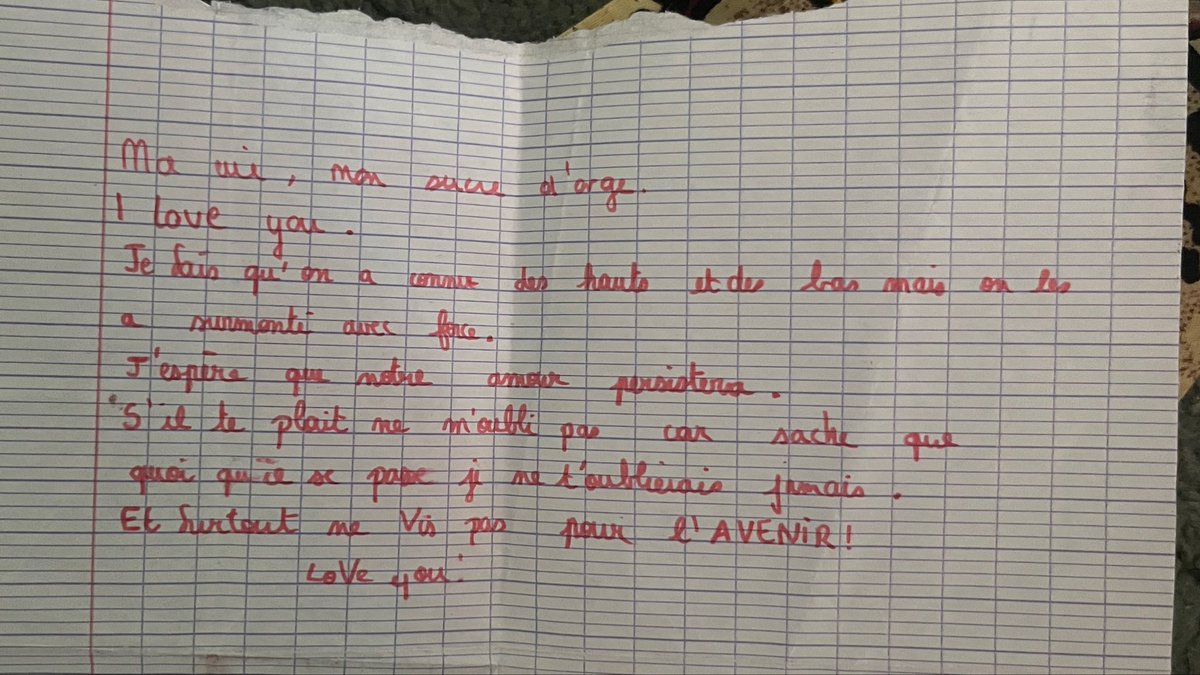 Ma vie, mon sucre d'orge.
I love you.
Je sais qu'on a connu des hauts et des bas mais on les
a surmonté avec force.
J'espère que notre amour persistera.
S'il te plait ne m'oubli pas car sache que
quoi qu'ile se passe je ne t'oublierais jamais.
Et surtout ne Vis pas pour l'AVENIR!
LoVe you.